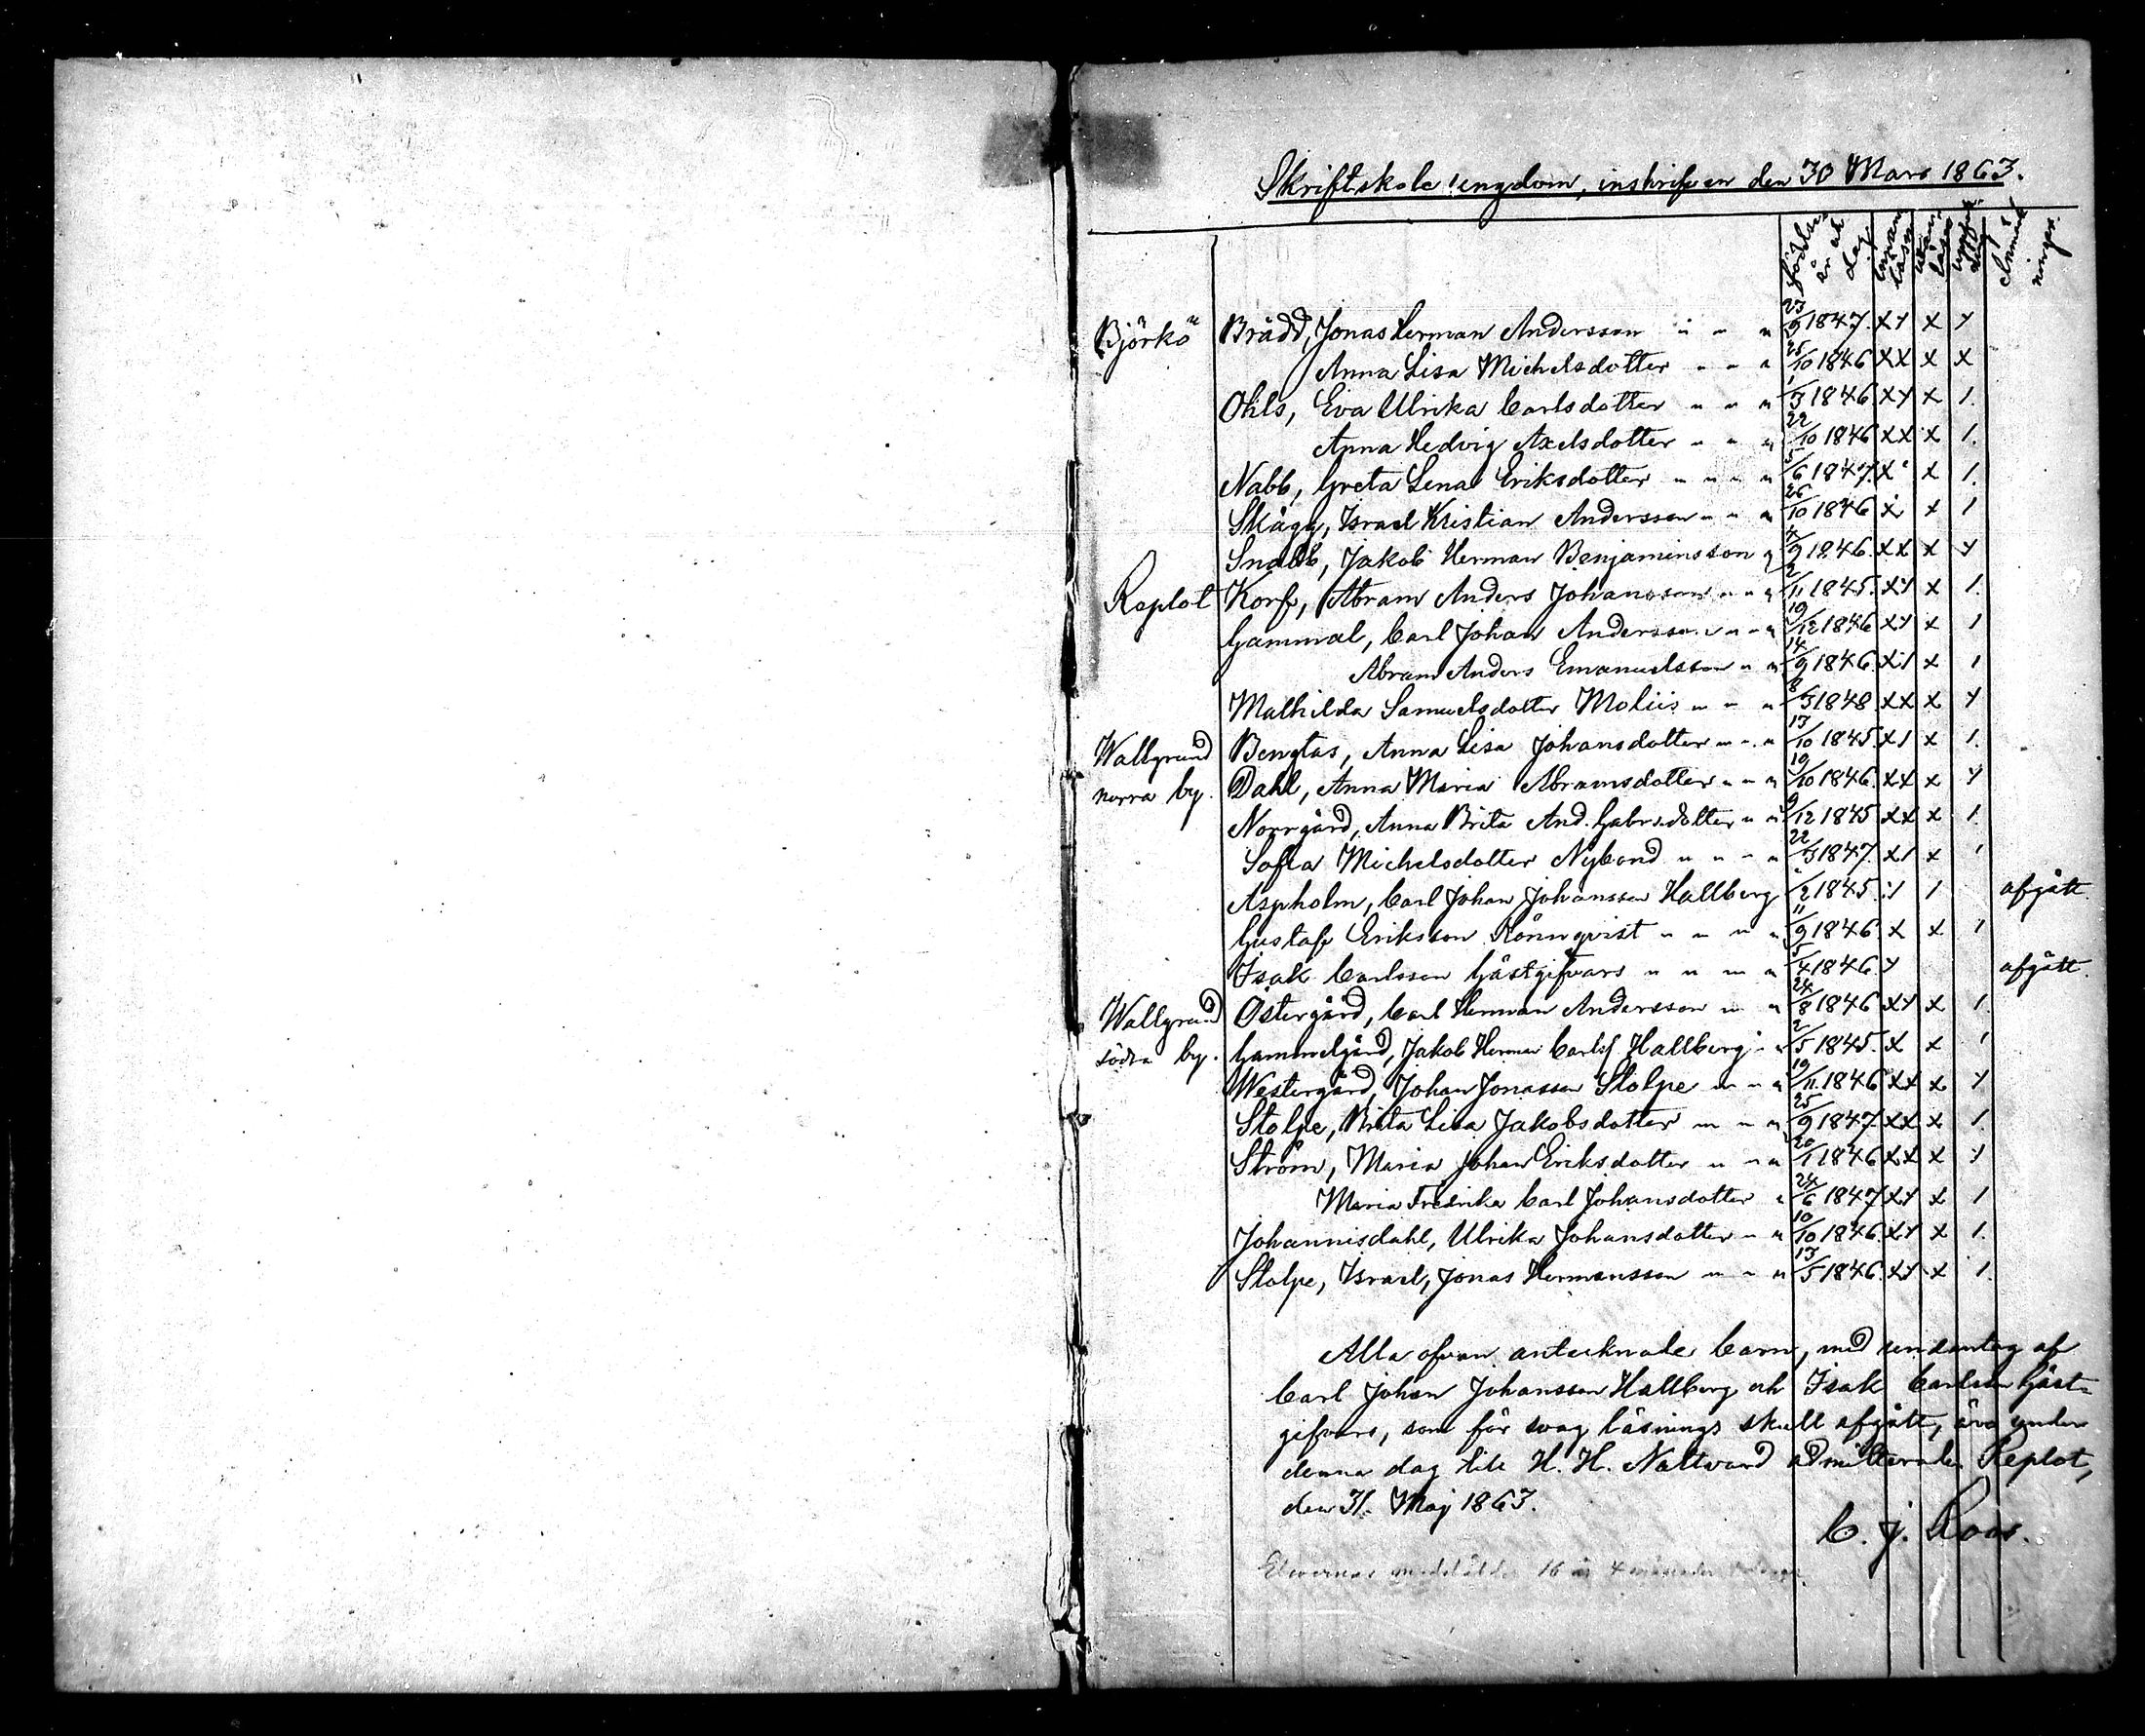 Skriftskole ungdom, inskrifven den 30 Mars 1863.
födelse år och dag innan läsn utan läsn Anmärkningar.
Björkö Brädd, Jonas Herman Andersson " " " 23/9 1847. x y x y
Anna Lisa Michelsdotter " " " 25/10 1846 x x x x
Ohls, Eva Ulrika Carlsdotter " " " 1/3 1846. x y x 1.
Anna Hedvig Axelsdotter " " " 22/10 1846 x x x 1.
Nabb, Greta Lena Eriksdotter " " " " 5/6 1847. x x 1.
Skägg, Israel Kristian Andersson " " " 26/10 1846 x x 1
Snabb, Jakob Herman Benjaminsson " 4/9 1846. x x x y
Replot Korf, Abram Anders Johansson " " " 2/11 1845. x y x 1.
Gammal, Carl Johan Andersson " " " 19/12 1846 x y x 1
Abram Anders Emanuelsson " " 14/9 1846. x 1 x 1
Mathilda Samuelsdotter Moliis " " " 8/3 1848. x x x y
Wallgrund Bengtas, Anna Lisa Johansdotter " " " 13/10 1845. x 1 x 1.
norra by. Dahl, Anna Maria Abramsdotter " " " 19/10 1846. x x x y
Norrgård, Anna Brita And. Gabr.sdotter " " 9/12 1845 x x x 1.
Sofia Michelsdotter Nybond " " " " 22/3 1847. x 1 x 1
Aspholm, Carl Johan Johansson Hallberg /2 1845. y 1 afgått.
Gustaf Eriksson Rönnqvist " " " " 11/9 1846. x x 1
Isak Carlsson Gästgifvars " " " " 5/4 1846. y afgått.
Wallgrund Östergård, Carl Herman Andersson " " 24/8 1846 x y x 1.
södra by. Gammelgård, Jakob Herman Carls. Hallberg " " 2/5 1845. x x 1
Westergård, Johan Jonasson Stolpe " " " 19/11. 1846 x x x y
Stolpe, Brita Lisa Jakobsdotter " " " 25/9 1847. x x x 1.
Ström, Maria Johan Eriksdotter " " " 20/1 1846 x x x y
Maria Fredrika Carl Johansdotter " 24/6 1847 x y x 1
Johannisdahl, Ulrika Johansdotter " " 10/10 1846. x y x 1.
Stolpe, Israel, Jonas Hermansson " " " 13/5 1846. x y x 1.
Alla ofvan antecknade barn, med undantag af
Carl Johan Johansson Hallberg och Isak Carlsson Gäst-
gifvars, som för svag läsnings skull afgått, äro under
denna dag till H. H. Nattvard admitterade. Replot,
den 31. Maj 1863.
C. J. Roos.
Elevernas medelålder 16 år 4 månader